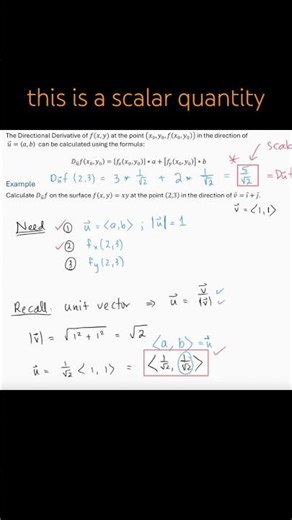 this is a scalar quantity
The Directional Derivative of f(x, y) at the point (x₀, y₀, f(x₀, y₀)) in the direction of
u⃗ = (a, b) can be calculated using the formula:
D_u⃗ f(x₀, y₀) = [f_x(x₀, y₀)] • a + [f_y(x₀, y₀)] • b
* scala
D_u⃗ f (2,3) = 3 * 1/√2 + 2 * 1/√2 = 5/√2 = D_u⃗ f
Example
Calculate D_u⃗ f on the surface f(x, y) = xy at the point (2,3) in the direction of v⃗ = i⃗ + j⃗.
v⃗ = <1,1>
Need ✓ ① u⃗ = <a,b> ; |u⃗| = 1
✓ ② f_x (2,3)
③ f_y (2,3)
Recall: unit vector ⇒ u⃗ = v⃗/|v⃗| ✓ ✓
|v⃗| = √(1² + 1²) = √2
<a, b> = u⃗
u⃗ = 1/√2 <1, 1> = <1/√2, 1/√2> ✓